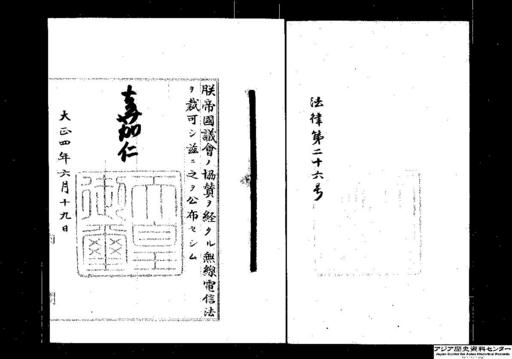 法律第二十六号
朕帝國議會ノ協賛ヲ経タル無線電信法
ヲ裁可シ茲ニ之ヲ公布セシム
嘉仁
天皇
御璽
大正四年六月十九日
アジア歴史資料センター
Japan Center for Asian Historical Records